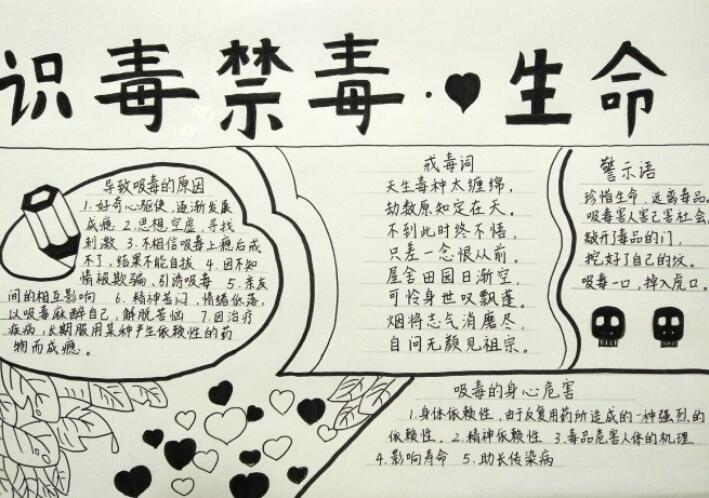 识毒禁毒·生命
导致吸毒的原因
1.好奇心驱使，逐渐发展
成瘾 2.思想空虚，寻找
刺激 3.不相信吸毒上瘾后戒
不了，结果不能自拔 4.因不知
情被欺骗，引诱吸毒 5.亲友
间的相互影响 6.精神苦闷，情绪低落，
以吸毒麻醉自己，解脱苦恼 7.因治疗
疾病，长期服用某种产生依赖性的药
物而成瘾。
戒毒词
天生毒种太缠绵，
劫数原知定在天。
不到此时终不悟，
只差一念恨从前。
屋舍田园日渐空，
可怜身世叹飘蓬。
烟将志气消磨尽，
自问无颜见祖宗。
警示语
珍惜生命，远离毒品。
吸毒害人害己害社会，
敲开了毒品的门，
挖好了自己的坟。
吸毒一口，掉入虎口。
吸毒的身心危害
1.身体依赖性，由于反复用药所造成的一种强烈的
依赖性。2.精神依赖性 3.毒品危害人体的机理
4.影响寿命 5.助长传染病